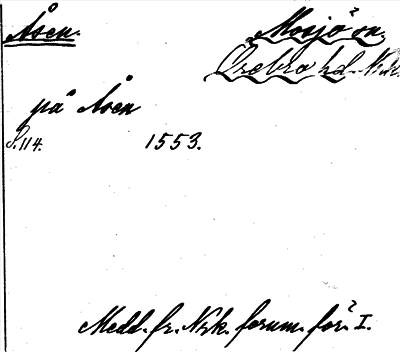 Åsen. Mosjö sn.
Örebro hd. Nrk.
på Åsen
S. 114. 1553.
Medd. fr. Nrk. fornm. för. I.